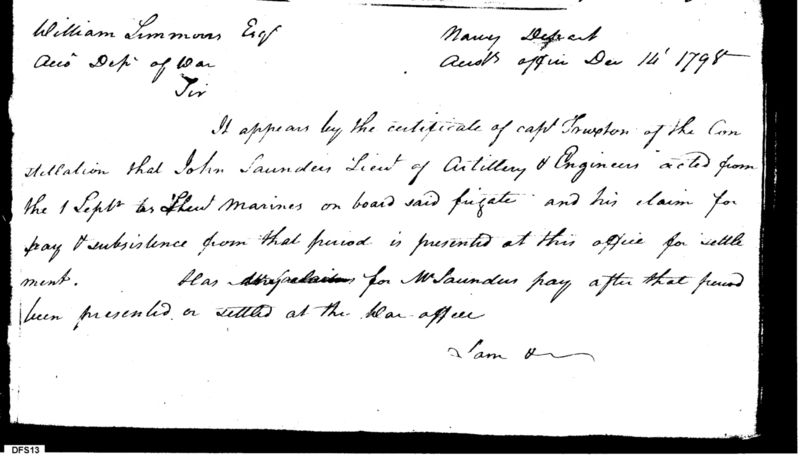 William Simmons Esqr
Navy Depart
Acct Dept of War
Acctts office Dec 14 1798
Sir
It appears by the certificate of capt Truxton of the Con
stellation that John Saunders Lieut of Artillery & Engineers acted from
the 1 Septr as Lieut Marines on board said frigate and his claim for
pay & subsistence from that period is presented at this office for settle
ment. Has for Mr Saunders pay after that period
been presented or settled at the War office
I am &
DFS13